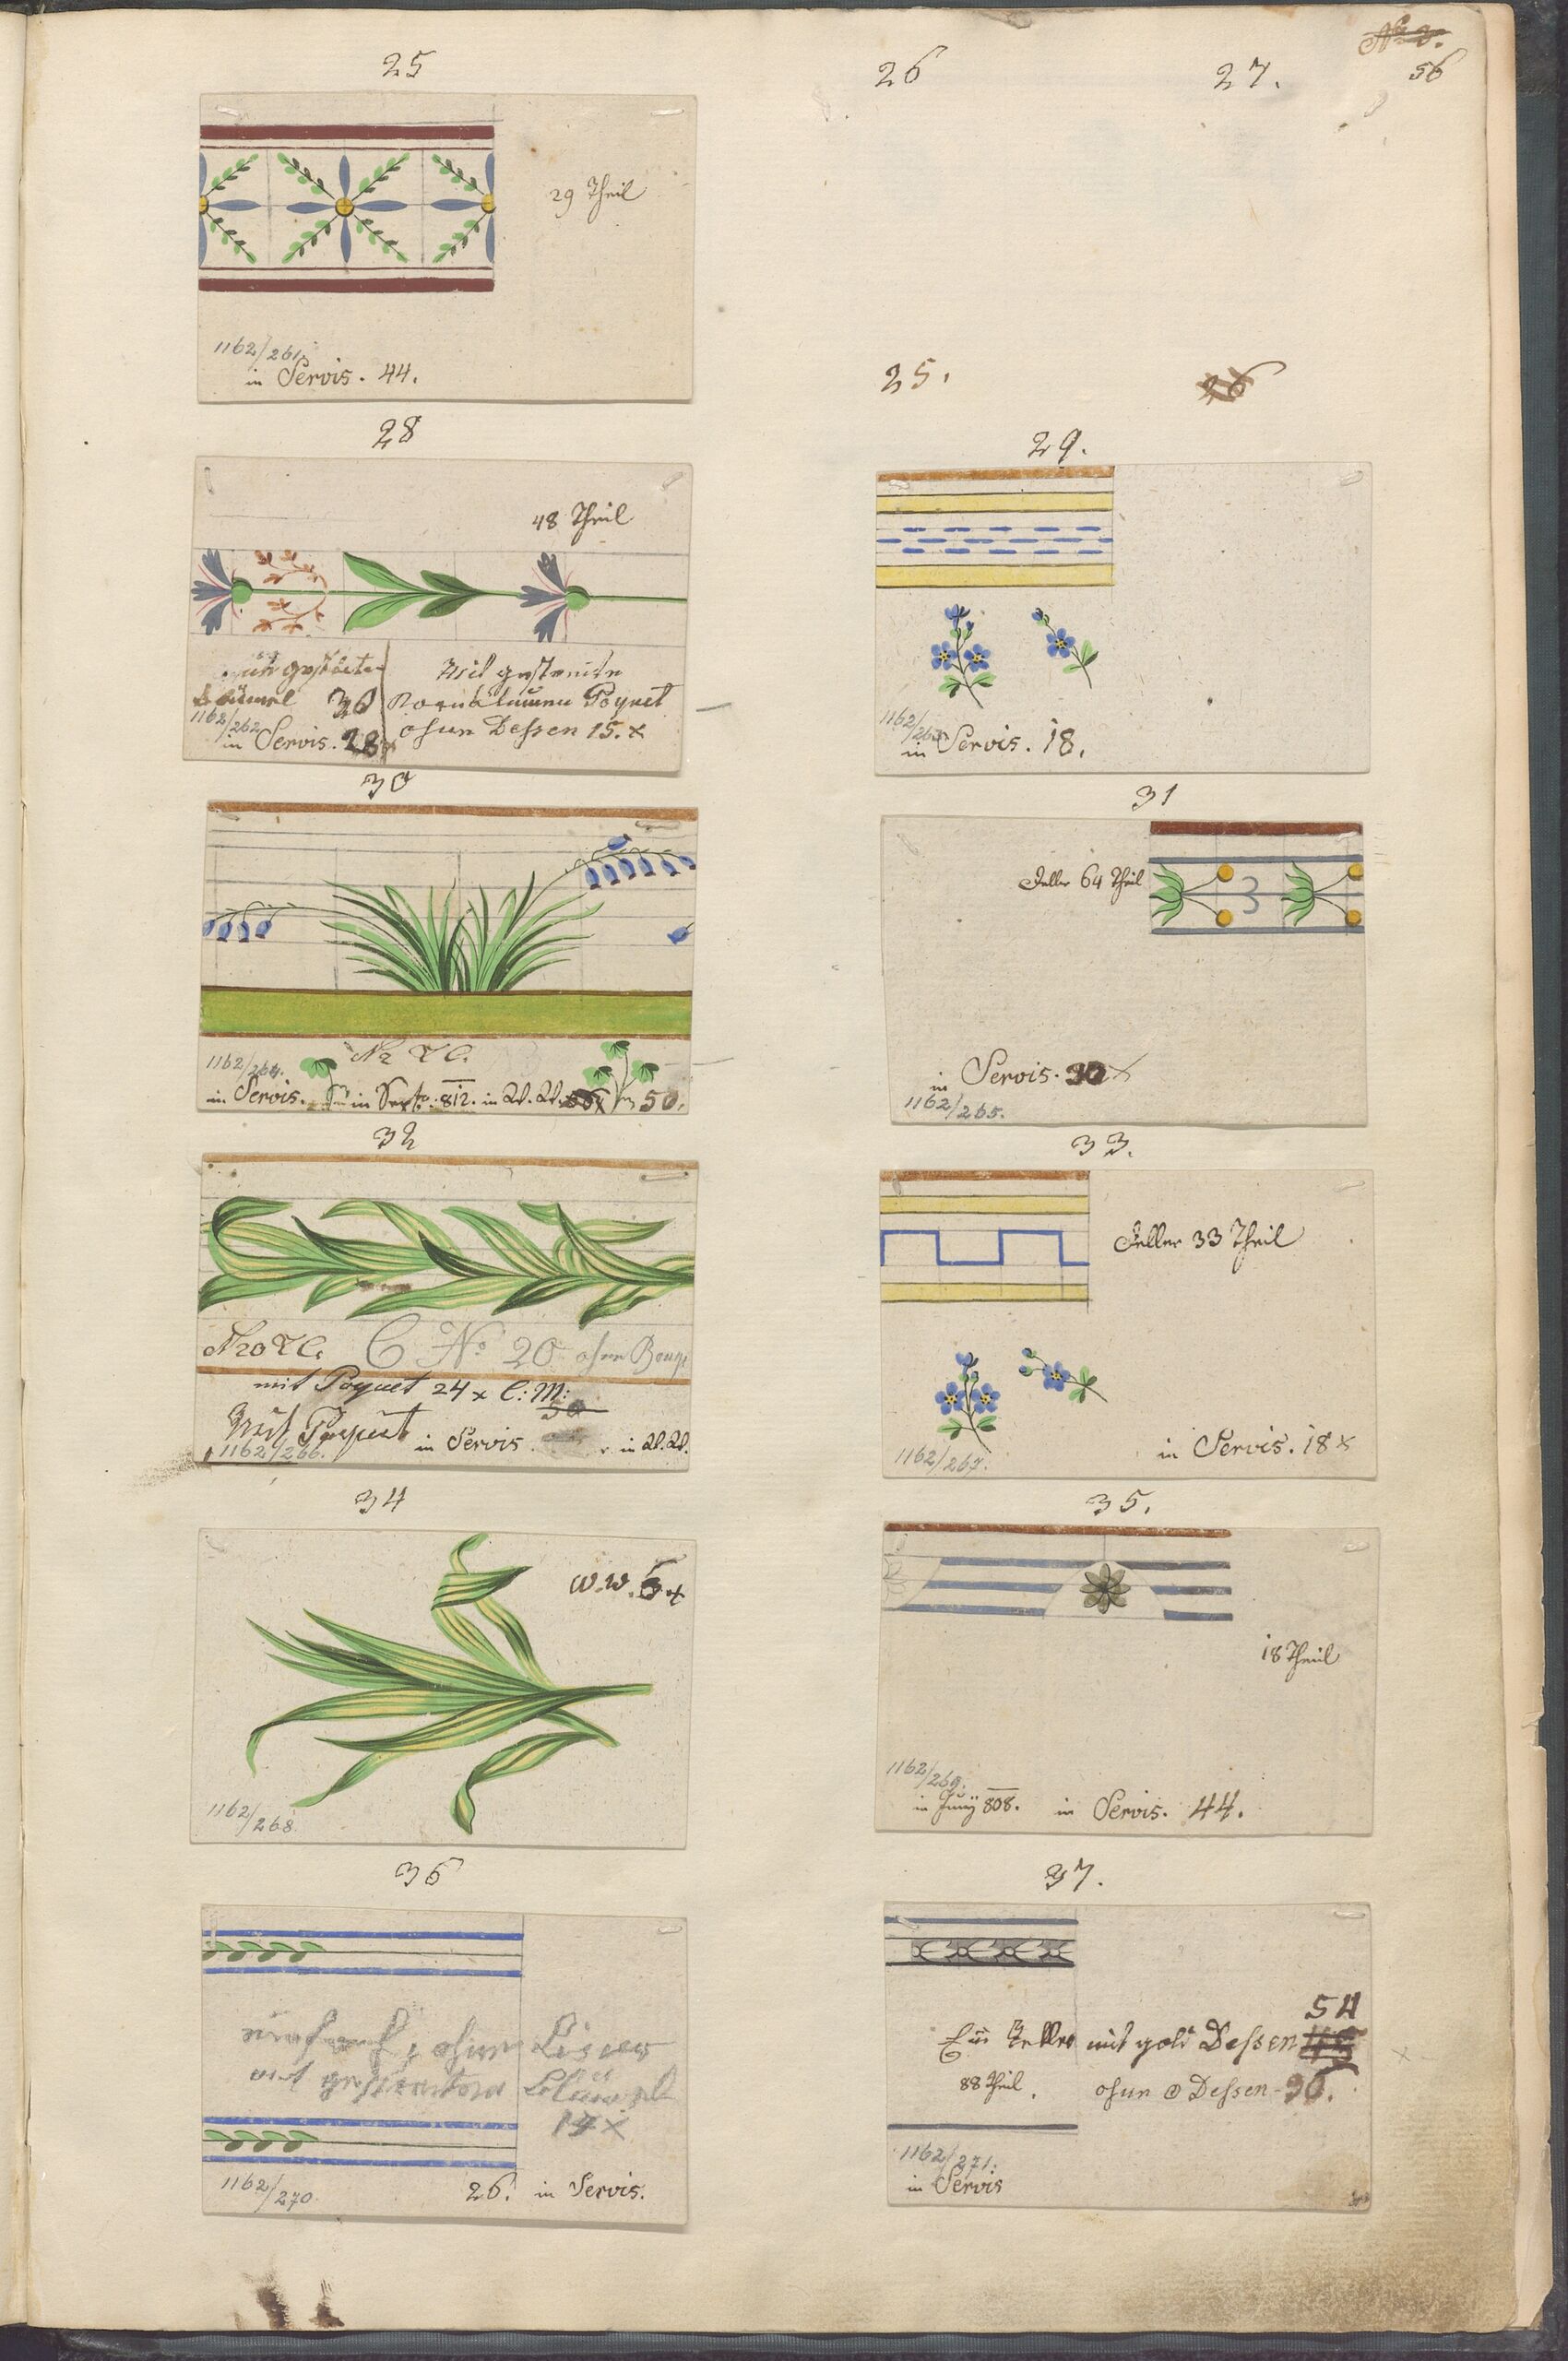 No 2.
56
25
26
27.
29 Theil
1162/261.
in Servis. 44.
25.
26
28
48 Theil
30
1162/262
in Servis. 28 x
Mit gestreute
Kornblumen Poquet
ohne Dessen 15. x
29.
1162/263
in Servis. 18.
30
No TC.
1162/264.
in Servis. in Sept. 812. in W. W. 50.
31
Teller 64 Theil
in Servis. 30 x
1162/265.
32
N20 TC. C No 20 ohne
mit Poquet 24 x C: M:
Mit Poquet in Servis. in W. W.
1162/266.
33.
Teller 33 Theil
1162/267.
in Servis. 18 x
34
W. W. 6 x
1162/268.
35.
18 Theil
1162/269.
in Junÿ 808. in Servis. 44.
36
ohne
mit gestreuten Blüml
17 x
1162/270.
26. in Servis.
37.
54
Ein Teller mit gold Dessen
88 Theil. ohne Dessen 30.
1162/271.
in Servis